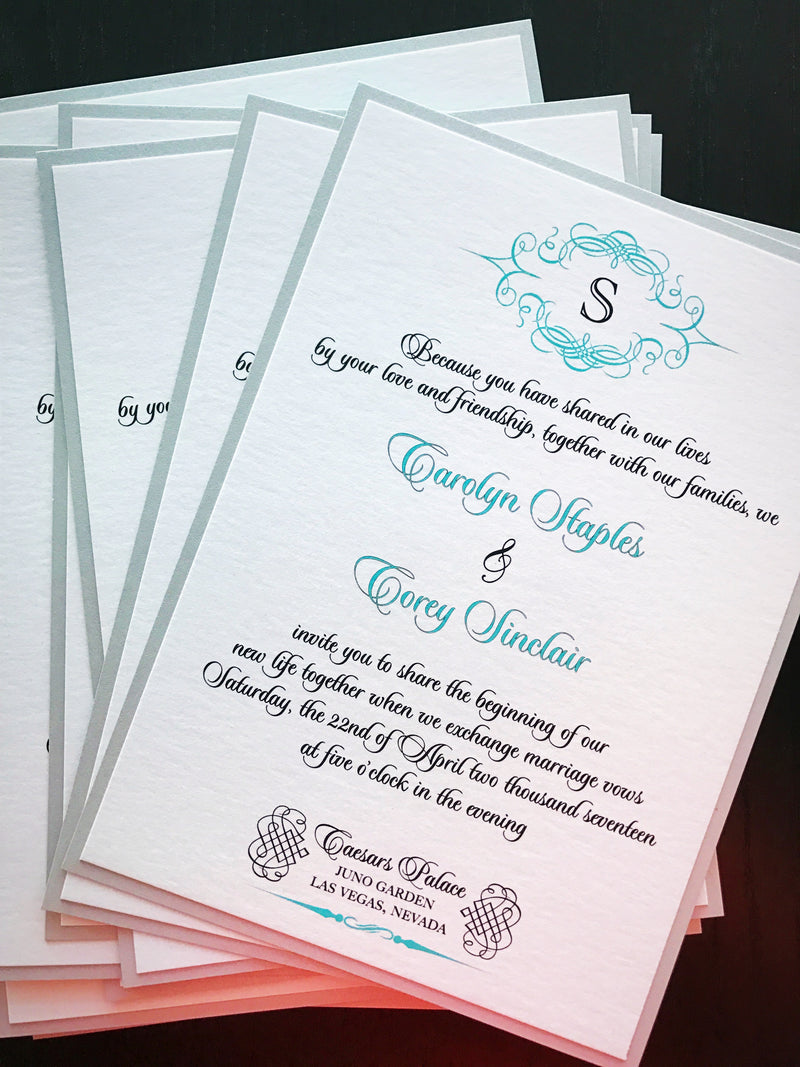 S
Because you have shared in our lives
by your love and friendship, together with our families, we
Carolyn Staples
&
Corey Sinclair
invite you to share the beginning of our
new life together when we exchange marriage vows
Saturday, the 22nd of April two thousand seventeen
at five o'clock in the evening
Caesars Palace
JUNO GARDEN
LAS VEGAS, NEVADA
by
by you
by